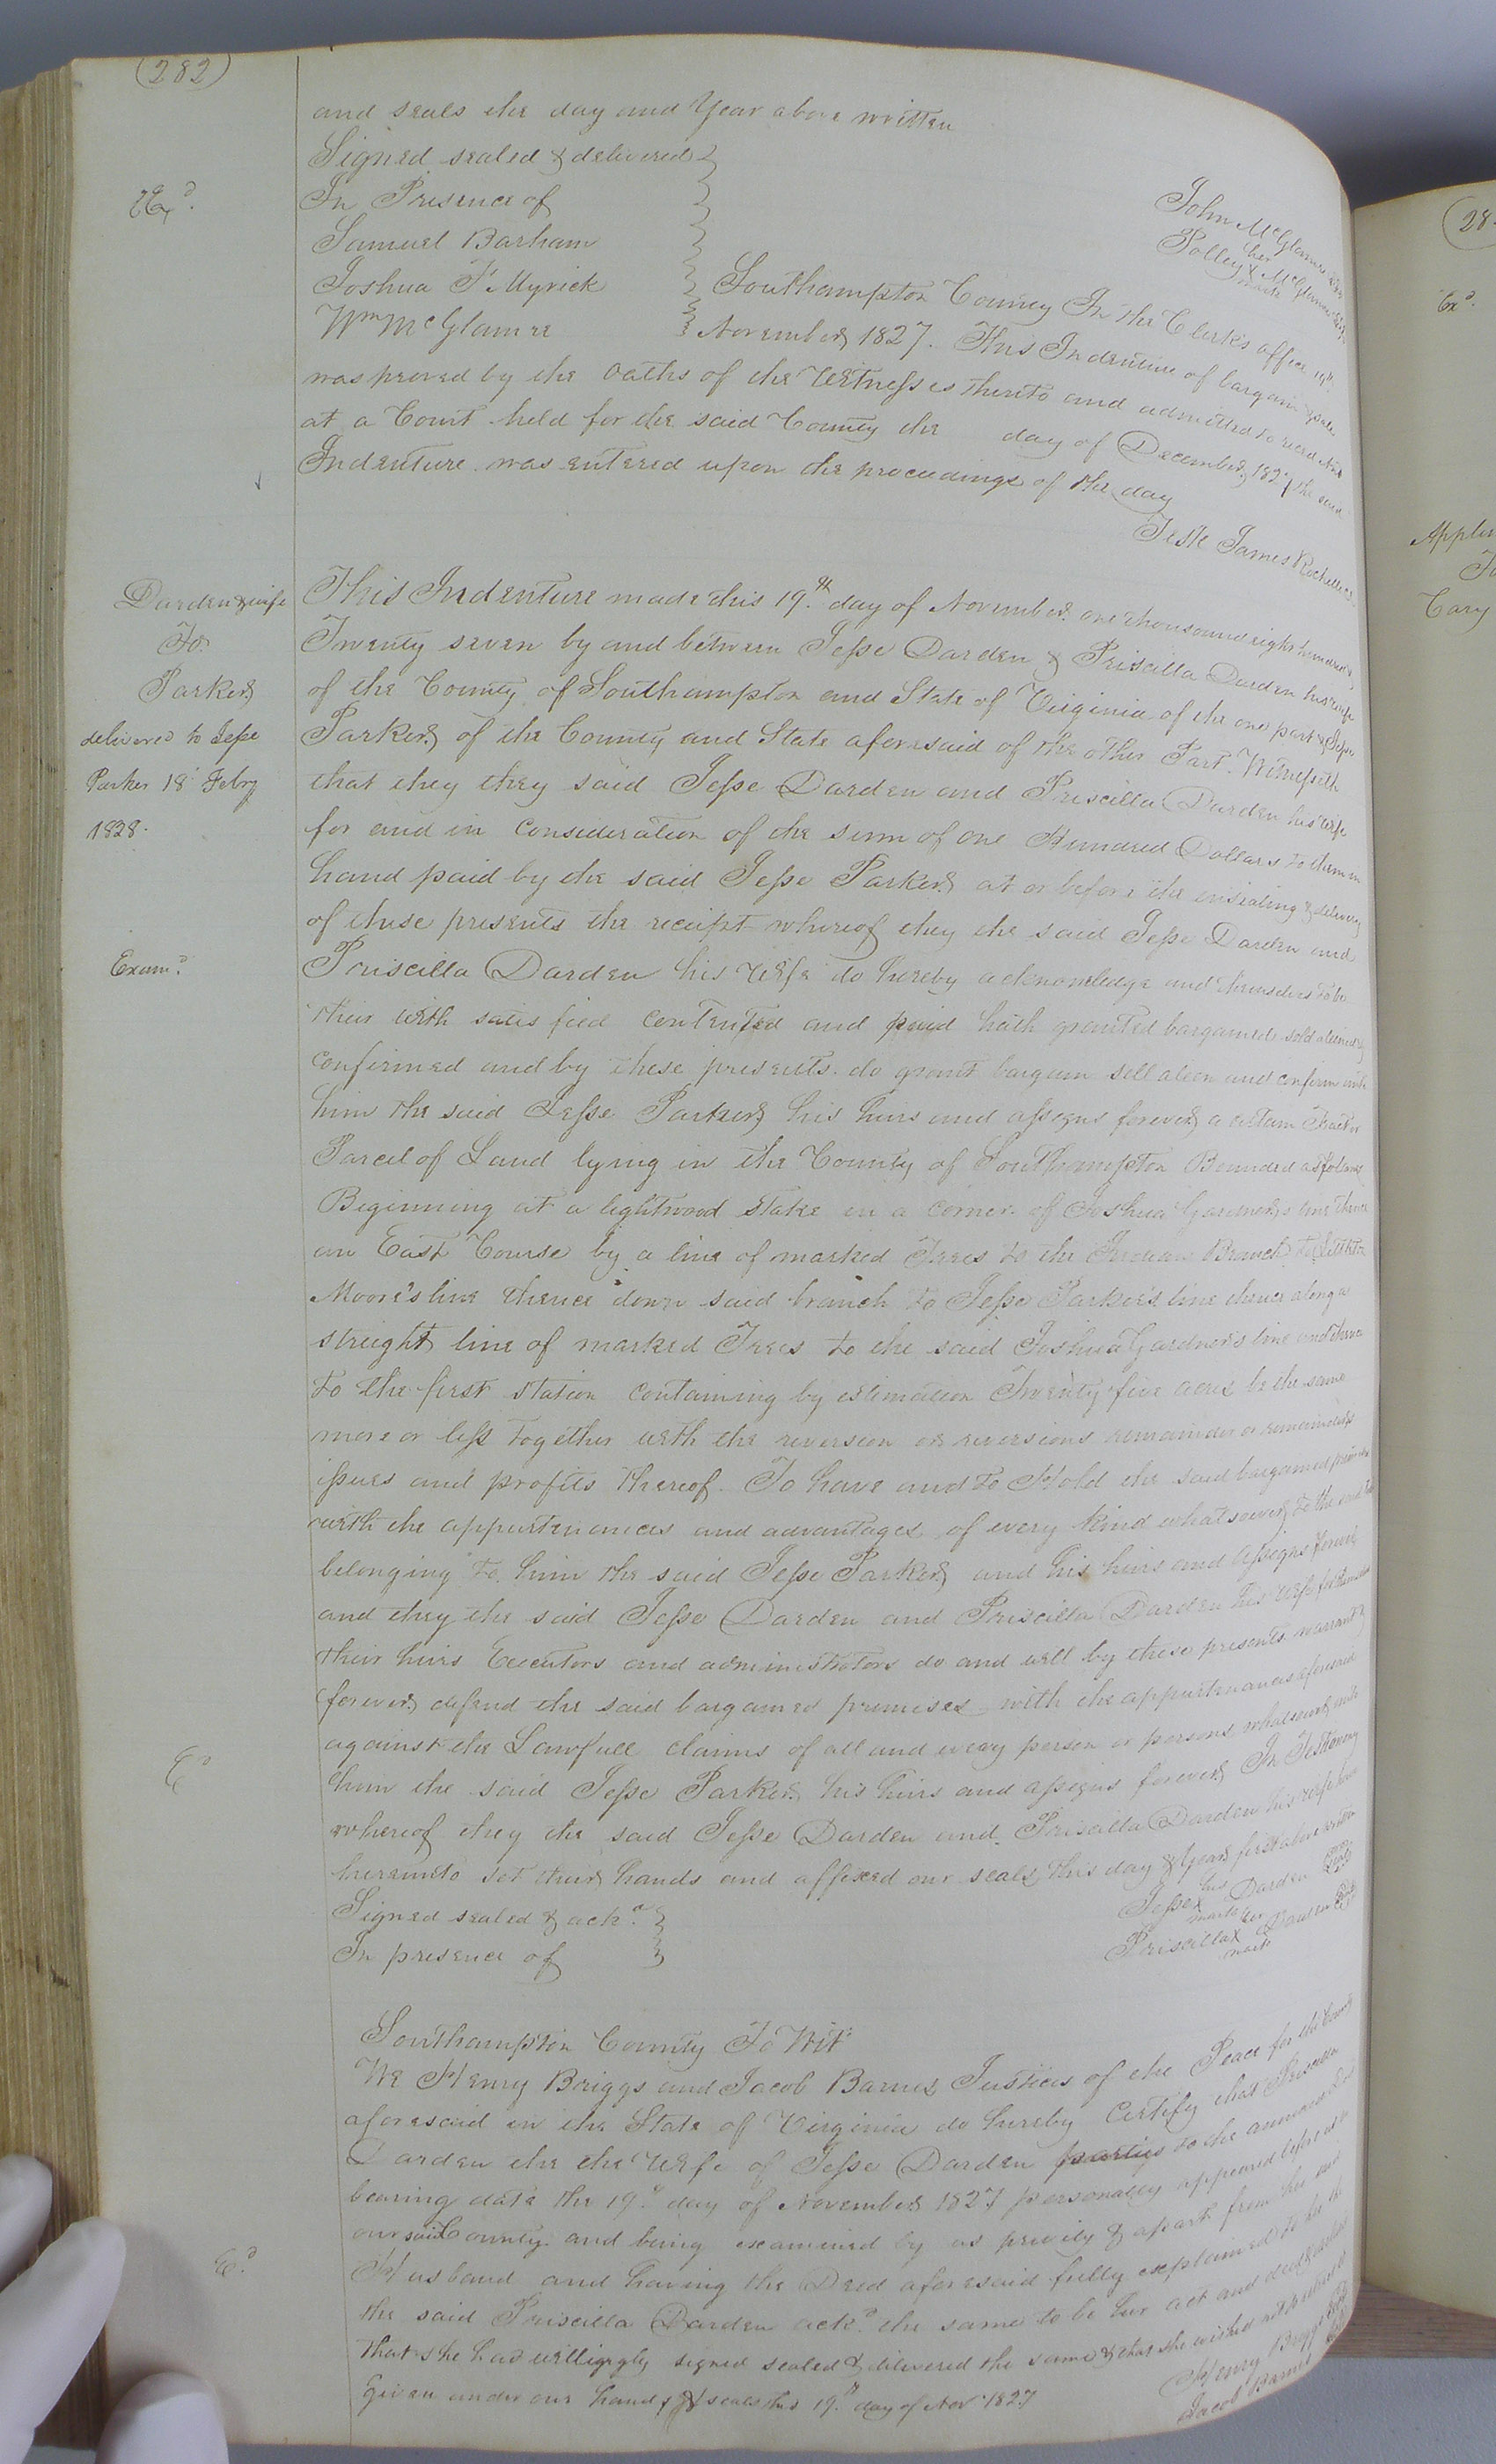 (282)
and seals the day and Year above written
Signed sealed & delivered
In Presence of
Samuel Barham
Joshua T. Myrick
Wm McGlamre
Exd.
John McGlamre Seal
her
Polley X McGlamre Seal
mark
Southampton County In the Clerk's office 19th
November 1827. This Indenture of bargain & sale
was proved by the oaths of the Witnesses thereto and admitted to record And
at a Court held for the said County the day of December 1827 the said
Indenture was entered upon the proceedings of the day
Teste James Rochelle
Darden & wife
To
Parker
delivered to Jesse
Parker 18 Feby
1828.
Examd.
This Indenture made this 19th day of November one thousound eight hundred
Twenty seven by and between Jesse Darden & Priscilla Darden his wife
of the County of Southampton and State of Virginia of the one part & Jesse
Parker of the County and State aforesaid of the other Part Witnesseth
that they they said Jesse Darden and Priscilla Darden his wife
for and in consideration of the sum of one Hundred Dollars to them in
hand paid by the said Jesse Parker at or before the ensealing & delivery
of these presents the receipt whereof they the said Jesse Darden and
Priscilla Darden his Wife do hereby acknowledge and themselves to be
their with satisfied contented and paid hath granted bargained sold aliened &
confirmed and by these presents do grant bargain sell alien and confirm unto
him the said Jesse Parker his heirs and assigns forever a certain Tract or
Parcel of Land lying in the County of Southampton Bounded as follows
Beginning at a lightwood Stake in a corner of Joshua Gardner's line thence
an East Course by a line of marked Trees to the Branch to
Moore's line thence down said branch to Jesse Parker's line thence along a
streight line of marked Trees to the said Joshua Gardner's line and thence
to the first Station containing by estimation Twenty five acres be the same
more or less together with the reversion or reversions remainder or remainders
issues and profits thereof. To have and to Hold the said bargained premises
with the appurtenances and advantages of every kind whatsoever to the said
belonging to him the said Jesse Parker and his heirs and assigns forever
and they the said Jesse Darden and Priscilla Darden his wife for themselves
their heirs Executors and administrators do and will by these presents warrant &
forever defend the said bargained premises with the appurtenances aforesaid
against the Lawfull claims of all and every person or persons whatsoever unto
him the said Jesse Parker his heirs and assigns forever In Testimony
whereof they the said Jesse Darden and Priscilla Darden his wife have
hereunto set their hands and affixed our seals this day & Year first above written
Signed sealed & ackd.
In presence of
his
Jesse X Darden Seal
mark
her
Priscilla X Darden Seal
mark
Ed
Southampton County To Wit
We Henry Briggs and Jacob Barnes Justices of the Peace for the County
aforesaid in the State of Virginia do hereby Certify that Priscilla
Darden the the Wife of Jesse Darden parties to the annexed Deed
bearing date the 19th day of November 1827 personally appeared before us in
our said County and being examined by us privily & apart from her said
Husband and having the Deed aforesaid fully explained to her she
the said Priscilla Darden ackd. the same to be her act and deed & declared
that she had willingly signed sealed & delivered the same & that she wished not to retract it
Given under our hands & seals this 19th day of Nov 1827
Henry Briggs Seal
Jacob Barnes Seal
Ed.
28
Ex.
Cary